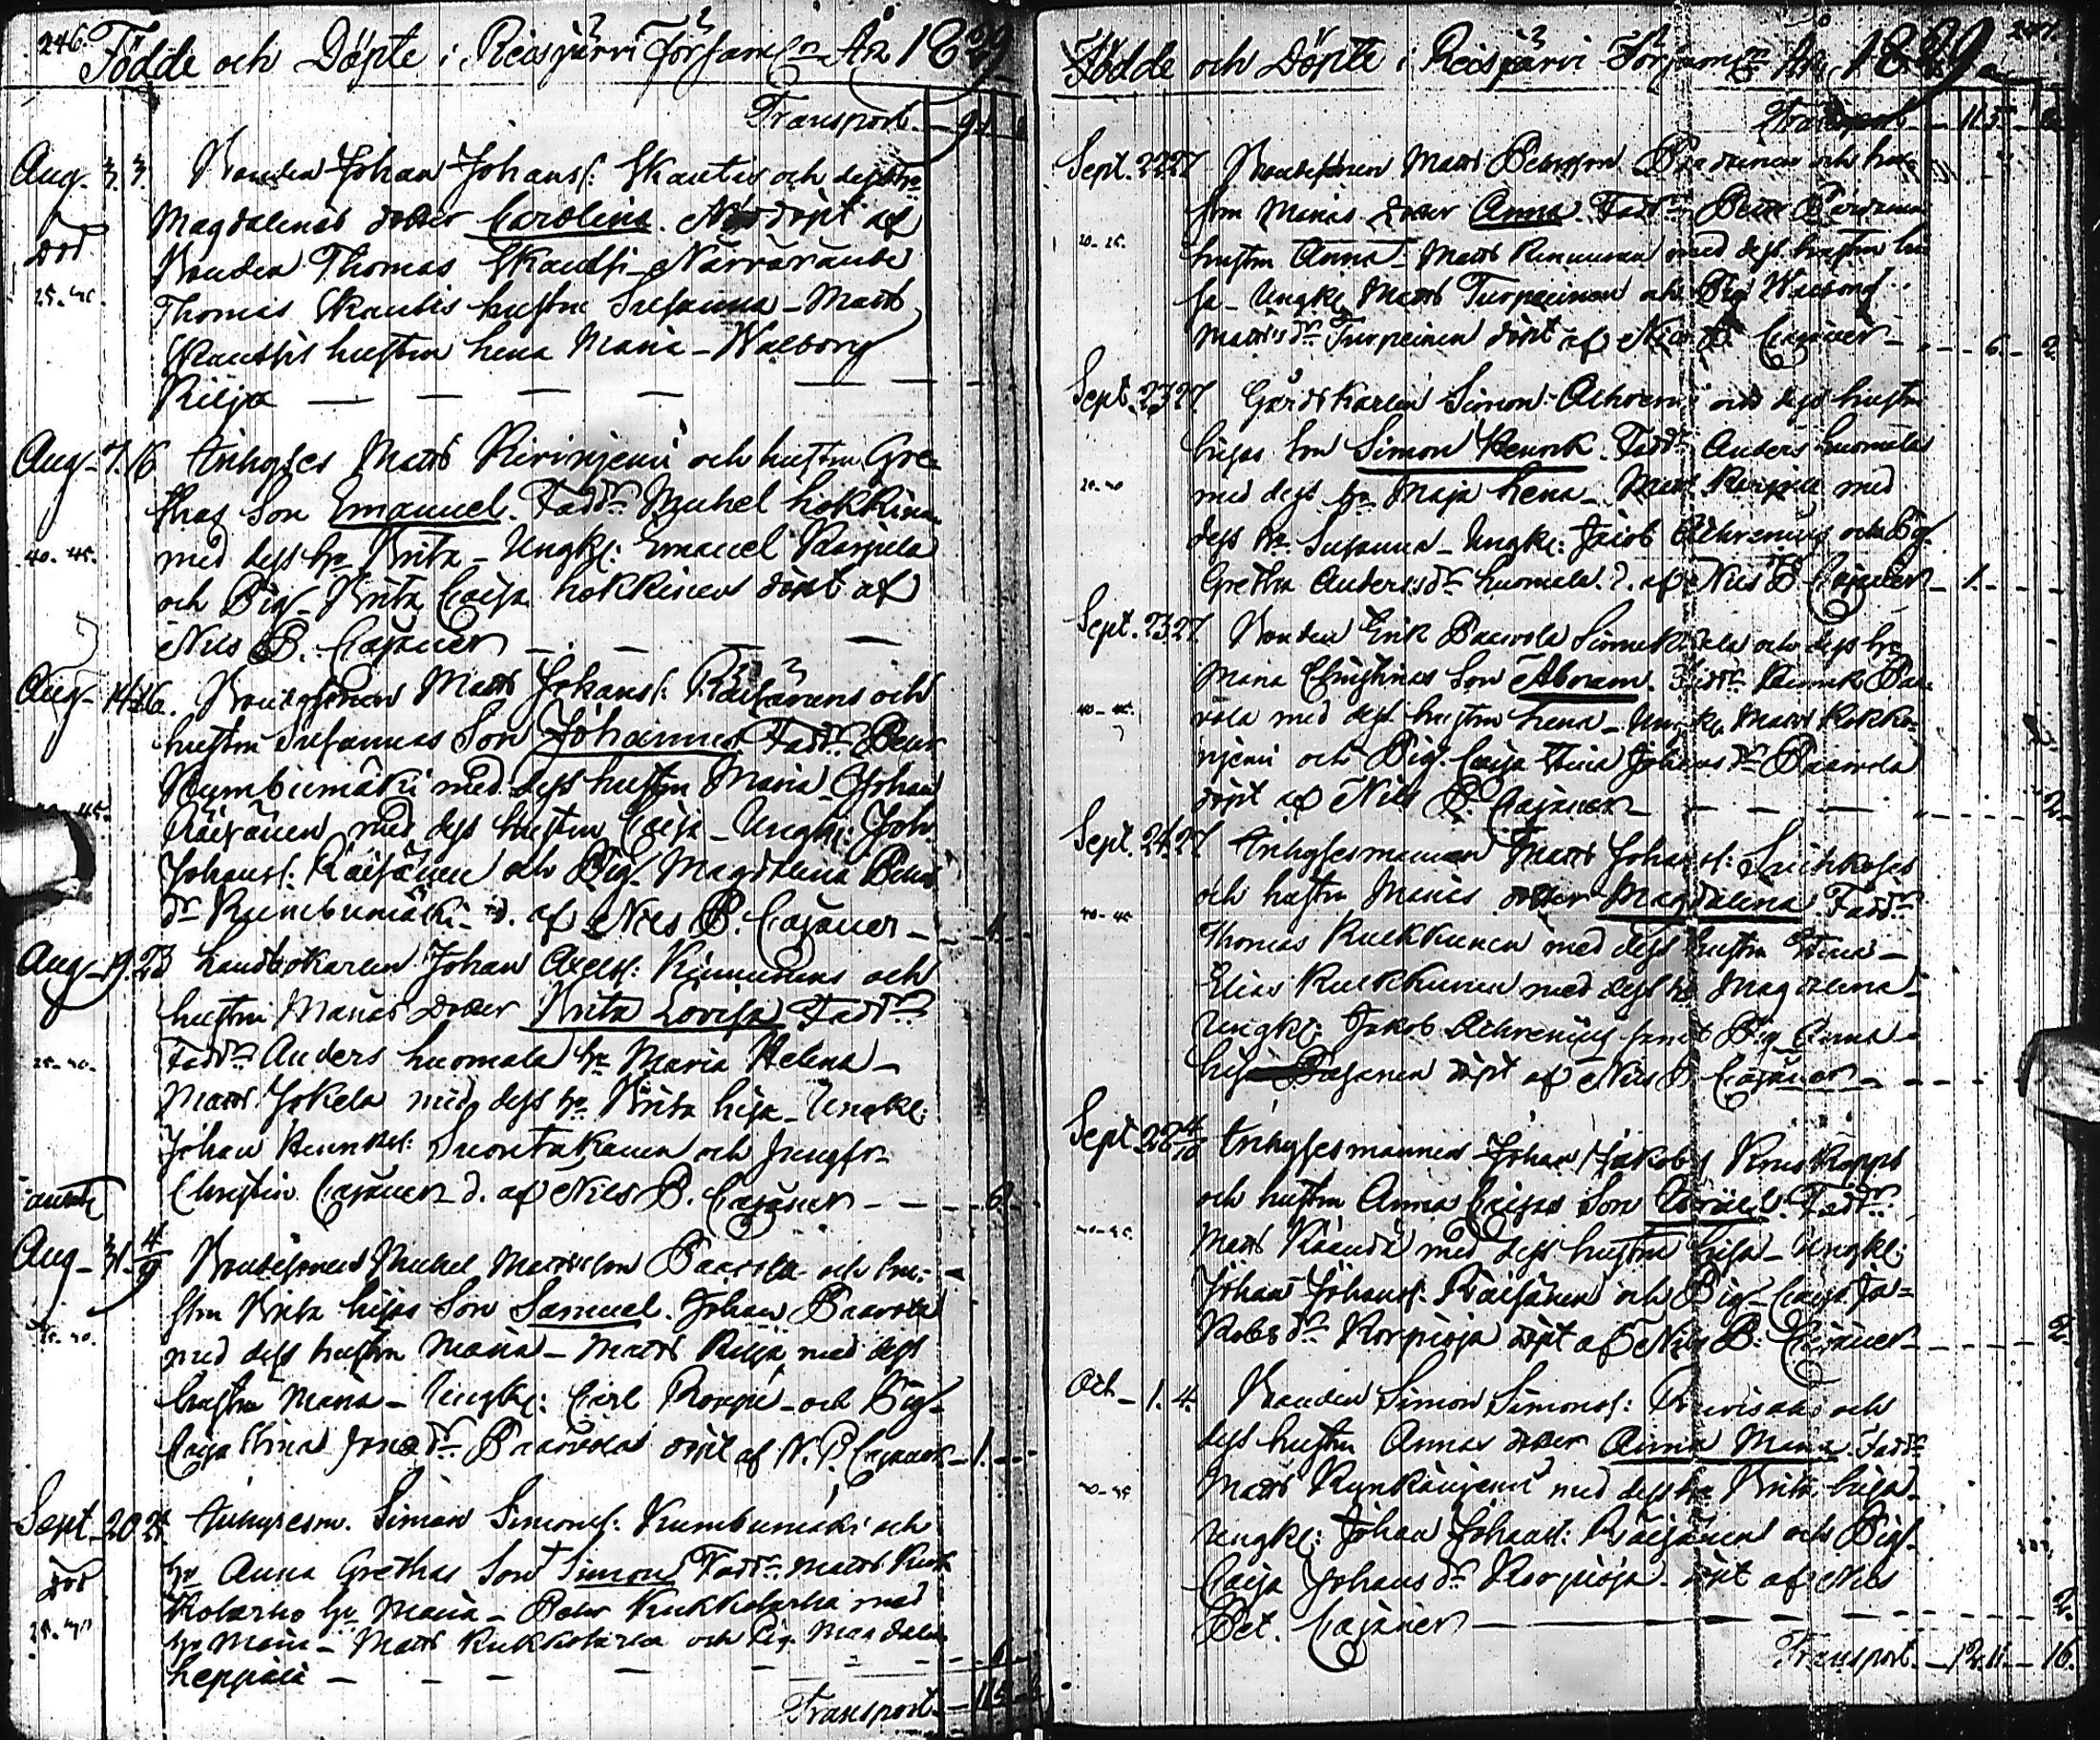 246. Födde och Döpte i Reisjärvi Församln År 1829
Transport.
Aug. 3. 3. Bonden Johan Johanss: Skantis och dess hr
Magdalenas dotter Carolina. Nöddöpt af
död Bonden Thomas Skantsi Närvarande
25-40. Thomas Skantis hustru Susanna - Matts
Skantsis hustru Lena Maria - Walborg
Kilja
Aug. 7. 16 Inhyses Matts Kiviniemi och hustru Gre-
thas Son Emanuel. Faddr Michel Lokkinen
40-45. med dess hr Brita - Ungkl: Emanuel Karjula
och Pig. Brita Caisa Lokkinen döpt af
Nils P. Cajaner
Aug. 14. 16. Bondesonen Matts Johanss: Räisänens och
hustru Susannas Son Johannes Faddr Petter
Kumbumäki med dess hustru Maria - Johan
Räisänen med dess hustru Caisa - Ungkl: Joh.
Johanss: Räisänen och Pig. Magdalena Petters
dr Kumbumäki - d. af Nils P. Cajaner - 1.
Aug. 19. 23 Landbokarlen Johan Axelss: Kinnunens och
hustru Marias dotter Brita Lovisa Faddr
25-40. Faddr Anders Luomala hr Maria Helena -
Matts Jokela med dess hr Brita Lisa - Ungkl:
Johan Henriks: Suontakanen och Jungfr.
Christin Cajaner d. af Nils P. Cajaner - 6.
Aug - 31 4/9 Bondesonens Michel Mattsson Paavola och hu-
stru Brita Lisas Son Samuel. Johan Paavola
med dess hustru Maria - Matts Kilja med dess
hustru Maria - Ungkl: Carl Korpi - och Pig.
Caisa Stina Jonas dr Paavola döpt af N. P. Cajaner - 1.
Sept - 20 21 Inhysesm. Simon Simonss: Kumbumäki och
död hr Anna Grethas Son Simon Faddr Matts Kuk-
kolarho hr Maria - Petter Kukkolarho med
hr Maria - Matts Kukkolarho och Pig. Magdalen
Leppälä
Transport - 115 - 2
Födde och Döpte i Reisjärvi Församln År 1829
Transport - 115 - 2
Sept. 22 27 Bondesonen Matts Petersson och hu-
strus Marias dotter Anna. Faddr Petter
hustru Anna - Matts Kinnunen med dess hustru Li-
sa - Ungkl. Matts Turpeinen och Pig. Walborg
Matts dr Turpeinen döpt af Nils P. Cajaner - 6 - 2.
Sept. 23 27. Gårdskarlen Simon Achrenius och dess hustru
Lisas Son Simon Henrik. Faddr Anders Luomala
med dess hr Maja Lena - Matts med
dess hr Susanna - Ungkl: Jacob Achrenius och Pig.
Gretha Anders dr Luomala. d. af Nils P. Cajaner - 1.
Sept. 23 27 Bonden Erik Paavola och dess hr
Maria Christinas Son Abram. Faddr Henrik Paa-
40-45. vola med dess hustru Lena - Ungkl. Matts Kokko-
niemi och Pig. Caisa Stina Johans dr Paavola
döpt af Nils P. Cajaner - 2.
Sept. 24. 27 Inhysesmannen Matts Johanss:
40-45 och hustru Marias dotter Magdalena. Faddr
Thomas Kukkunen med dess hustru Stina -
Elias Kukkunen med dess hr Magdalena -
Ungkl: Jakob Achrenius samt Pig. Anna
Lisa Pajanen döpt af Nils P. Cajaner
Sept. 28 4/10 Inhysesmannen Johan Jakobs
och hustru Anna Caisas Son Faddr
Matts med dess hustru Lisa - Ungkl:
Johan Johanss: Räisänen och Pig. Caisa Ja-
kobs dr Korpioja döpt af Nils P. Cajaner - 2.
Oct - 1. 4. Bonden Simon Simonss: och
dess hustru Annas dotter Anna Maria. Faddr
Matts med dess hr Brita Lisa -
Ungkl: Johan Johanss: Räisänen och Pig.
Caisa Johans dr Korpioja döpt af Nils
Pet. Cajaner - 2.
Transport. - 12 11. - 16.